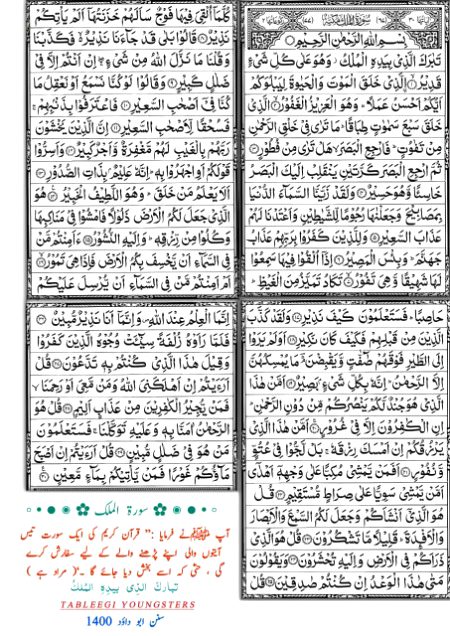 سُوْرَةُ الْمُلْكِ مَكِّيَّةٌ
بِسْمِ اللّٰهِ الرَّحْمٰنِ الرَّحِيْمِ
تَبٰرَكَ الَّذِىْ بِيَدِهِ الْمُلْكُ وَهُوَ عَلٰى كُلِّ شَىْءٍ
قَدِيْرُ ۝١ الَّذِىْ خَلَقَ الْمَوْتَ وَالْحَيٰوةَ لِيَبْلُوَكُمْ
اَيُّكُمْ اَحْسَنُ عَمَلًا ؕ وَهُوَ الْعَزِيْزُ الْغَفُوْرُ ۝٢ الَّذِىْ
خَلَقَ سَبْعَ سَمٰوٰتٍ طِبَاقًا ؕ مَا تَرٰى فِىْ خَلْقِ الرَّحْمٰنِ
مِنْ تَفٰوُتٍ ؕ فَارْجِعِ الْبَصَرَ ۙ هَلْ تَرٰى مِنْ فُطُوْرٍ ۝٣
ثُمَّ ارْجِعِ الْبَصَرَ كَرَّتَيْنِ يَنْقَلِبْ اِلَيْكَ الْبَصَرُ
خَاسِئًا وَّهُوَ حَسِيْرٌ ۝٤ وَلَقَدْ زَيَّنَّا السَّمَآءَ الدُّنْيَا
بِمَصَابِيْحَ وَجَعَلْنٰهَا رُجُوْمًا لِّلشَّيٰطِيْنِ وَاَعْتَدْنَا لَهُمْ
عَذَابَ السَّعِيْرِ ۝٥ وَلِلَّذِيْنَ كَفَرُوْا بِرَبِّهِمْ عَذَابُ
جَهَنَّمَ ؕ وَبِئْسَ الْمَصِيْرُ ۝٦ اِذَاۤ اُلْقُوْا فِيْهَا سَمِعُوْا
لَهَا شَهِيْقًا وَّهِىَ تَفُوْرُ ۝٧ تَكَادُ تَمَيَّزُ مِنَ الْغَيْظِ ؕ
كُلَّمَاۤ اُلْقِىَ فِيْهَا فَوْجٌ سَاَلَهُمْ خَزَنَتُهَاۤ اَلَمْ يَاْتِكُمْ
نَذِيْرٌ ۝٨ قَالُوْا بَلٰى قَدْ جَآءَنَا نَذِيْرٌ ۙ فَكَذَّبْنَا
وَقُلْنَا مَا نَزَّلَ اللّٰهُ مِنْ شَىْءٍ ۖ اِنْ اَنْتُمْ اِلَّا فِىْ
ضَلٰلٍ كَبِيْرٍ ۝٩ وَقَالُوْا لَوْ كُنَّا نَسْمَعُ اَوْ نَعْقِلُ مَا
كُنَّا فِىْۤ اَصْحٰبِ السَّعِيْرِ ۝١٠ فَاعْتَرَفُوْا بِذَنْۢبِهِمْ ۚ
فَسُحْقًا لِّاَصْحٰبِ السَّعِيْرِ ۝١١ اِنَّ الَّذِيْنَ يَخْشَوْنَ
رَبَّهُمْ بِالْغَيْبِ لَهُمْ مَّغْفِرَةٌ وَّاَجْرٌ كَبِيْرٌ ۝١٢ وَاَسِرُّوْا
قَوْلَكُمْ اَوِ اجْهَرُوْا بِهٖ ؕ اِنَّهٗ عَلِيْمٌۢ بِذَاتِ الصُّدُوْرِ ۝١٣
اَلَا يَعْلَمُ مَنْ خَلَقَ ؕ وَهُوَ اللَّطِيْفُ الْخَبِيْرُ ۝١٤ هُوَ
الَّذِىْ جَعَلَ لَكُمُ الْاَرْضَ ذَلُوْلًا فَامْشُوْا فِىْ مَنَاكِبِهَا
وَكُلُوْا مِنْ رِّزْقِهٖ ؕ وَاِلَيْهِ النُّشُوْرُ ۝١٥ ءَاَمِنْتُمْ مَّنْ
فِى السَّمَآءِ اَنْ يَّخْسِفَ بِكُمُ الْاَرْضَ فَاِذَا هِىَ تَمُوْرُ ۝١٦
اَمْ اَمِنْتُمْ مَّنْ فِى السَّمَآءِ اَنْ يُّرْسِلَ عَلَيْكُمْ
حَاصِبًا ؕ فَسَتَعْلَمُوْنَ كَيْفَ نَذِيْرِ ۝١٧ وَلَقَدْ كَذَّبَ
الَّذِيْنَ مِنْ قَبْلِهِمْ فَكَيْفَ كَانَ نَكِيْرِ ۝١٨ اَوَلَمْ يَرَوْا
اِلَى الطَّيْرِ فَوْقَهُمْ صٰٓفّٰتٍ وَّيَقْبِضْنَ ؔۘ مَا يُمْسِكُهُنَّ
اِلَّا الرَّحْمٰنُ ؕ اِنَّهٗ بِكُلِّ شَىْءٍۢ بَصِيْرٌ ۝١٩ اَمَّنْ هٰذَا
الَّذِىْ هُوَ جُنْدٌ لَّكُمْ يَنْصُرُكُمْ مِّنْ دُوْنِ الرَّحْمٰنِ ؕ
اِنِ الْكٰفِرُوْنَ اِلَّا فِىْ غُرُوْرٍ ۝٢٠ اَمَّنْ هٰذَا الَّذِىْ
يَرْزُقُكُمْ اِنْ اَمْسَكَ رِزْقَهٗ ۚ بَلْ لَّجُّوْا فِىْ عُتُوٍّ
وَّنُفُوْرٍ ۝٢١ اَفَمَنْ يَّمْشِىْ مُكِبًّا عَلٰى وَجْهِهٖۤ اَهْدٰٓى
اَمَّنْ يَّمْشِىْ سَوِيًّا عَلٰى صِرَاطٍ مُّسْتَقِيْمٍ ۝٢٢ قُلْ
هُوَ الَّذِىْۤ اَنْشَاَكُمْ وَجَعَلَ لَكُمُ السَّمْعَ وَالْاَبْصَارَ
وَالْاَفْـِٕدَةَ ؕ قَلِيْلًا مَّا تَشْكُرُوْنَ ۝٢٣ قُلْ هُوَ الَّذِىْ
ذَرَاَكُمْ فِى الْاَرْضِ وَاِلَيْهِ تُحْشَرُوْنَ ۝٢٤ وَيَقُوْلُوْنَ
مَتٰى هٰذَا الْوَعْدُ اِنْ كُنْتُمْ صٰدِقِيْنَ ۝٢٥ قُلْ
اِنَّمَا الْعِلْمُ عِنْدَ اللّٰهِ ۪ وَاِنَّمَاۤ اَنَا نَذِيْرٌ مُّبِيْنٌ ۝٢٦
فَلَمَّا رَاَوْهُ زُلْفَةً سِيْٓـَٔتْ وُجُوْهُ الَّذِيْنَ كَفَرُوْا
وَقِيْلَ هٰذَا الَّذِىْ كُنْتُمْ بِهٖ تَدَّعُوْنَ ۝٢٧ قُلْ
اَرَءَيْتُمْ اِنْ اَهْلَكَنِىَ اللّٰهُ وَمَنْ مَّعِىَ اَوْ رَحِمَنَا ۙ
فَمَنْ يُّجِيْرُ الْكٰفِرِيْنَ مِنْ عَذَابٍ اَلِيْمٍ ۝٢٨ قُلْ هُوَ
الرَّحْمٰنُ اٰمَنَّا بِهٖ وَعَلَيْهِ تَوَكَّلْنَا ۚ فَسَتَعْلَمُوْنَ
مَنْ هُوَ فِىْ ضَلٰلٍ مُّبِيْنٍ ۝٢٩ قُلْ اَرَءَيْتُمْ اِنْ اَصْبَحَ
مَآؤُكُمْ غَوْرًا فَمَنْ يَّاْتِيْكُمْ بِمَآءٍ مَّعِيْنٍ ۝٣٠
سورة الملك
آپ ﷺ نے فرمایا :" قرآن کریم کی ایک سورت تیس
آیتوں والی اپنے پڑھنے والے کے لیے سفارش کرے
گی ، حتیٰ کہ اسے بخش دیا جائے گا ۔"( مراد ہے )
تبارك الذي بيده الملك
TABLEEGI YOUNGSTERS
سنن ابو داؤد 1400